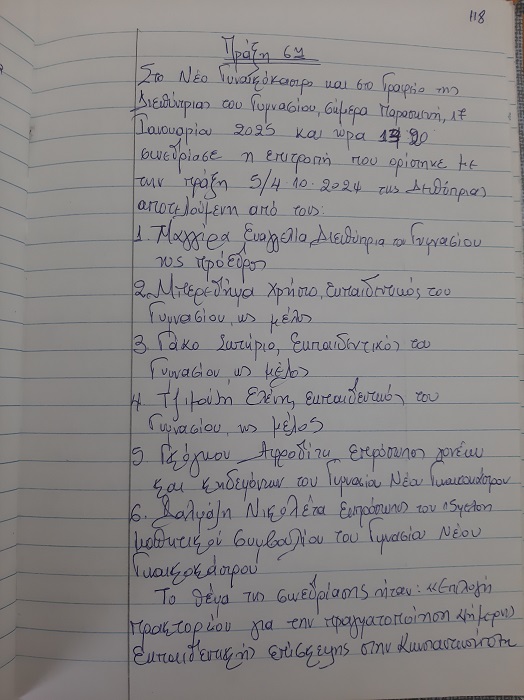 118
Πράξη 6η
Στο Νέο Γυναικόκαστρο και στο Γραφείο της
Διευθύντριας του Γυμνασίου, σήμερα Παρασκευή, 17
Ιανουαρίου 2025 και ώρα
συνεδρίασε η επιτροπή που ορίστηκε με
την πράξη 5/4.10.2024 της Διευθύντριας
αποτελούμενη από τους:
1. Ευαγγελία, Διευθύντρια του Γυμνασίου
ως πρόεδρο
2. Χρήστο, εκπαιδευτικός του
Γυμνασίου, ως μέλος
3. Γάκο Σωτήριο, Εκπαιδευτικός του
Γυμνασίου, ως μέλος
4. Ελένη, εκπαιδευτικός του
Γυμνασίου, ως μέλος
5. Αφροδίτη, εκπρόσωπος γονέων
και κηδεμόνων του Γυμνασίου Νέου Γυναικοκάστρου
6. Νικολέτα εκπρόσωπο του 15μελούς
μαθητικού συμβουλίου του Γυμνασίου Νέου
Γυναικοκάστρου
Το θέμα της συνεδρίασης ήταν: «Επιλογή
Πρακτορείου για την πραγματοποίηση
Εκπαιδευτικής επίσκεψης στην Κωνσταντινούπολη